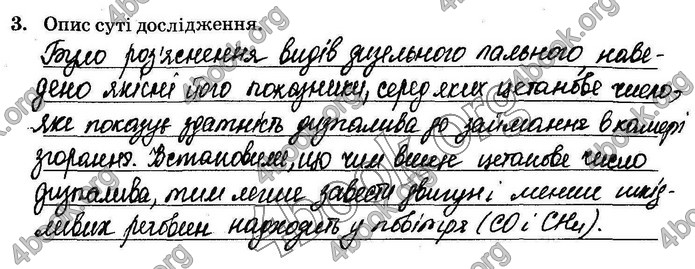 3. Опис суті дослідження.
Було роз'яснення видів дизельного пального, наве-
дено якісні його показники, серед яких цетанове число,
яке показує здатність дизпалива до займання в камері
згорання. Встановили, що чим вище цетанове число
дизпалива, тим легше завести двигун і менше шкід-
ливих речовин надходить у повітря (CO і CH₄).
4book.org